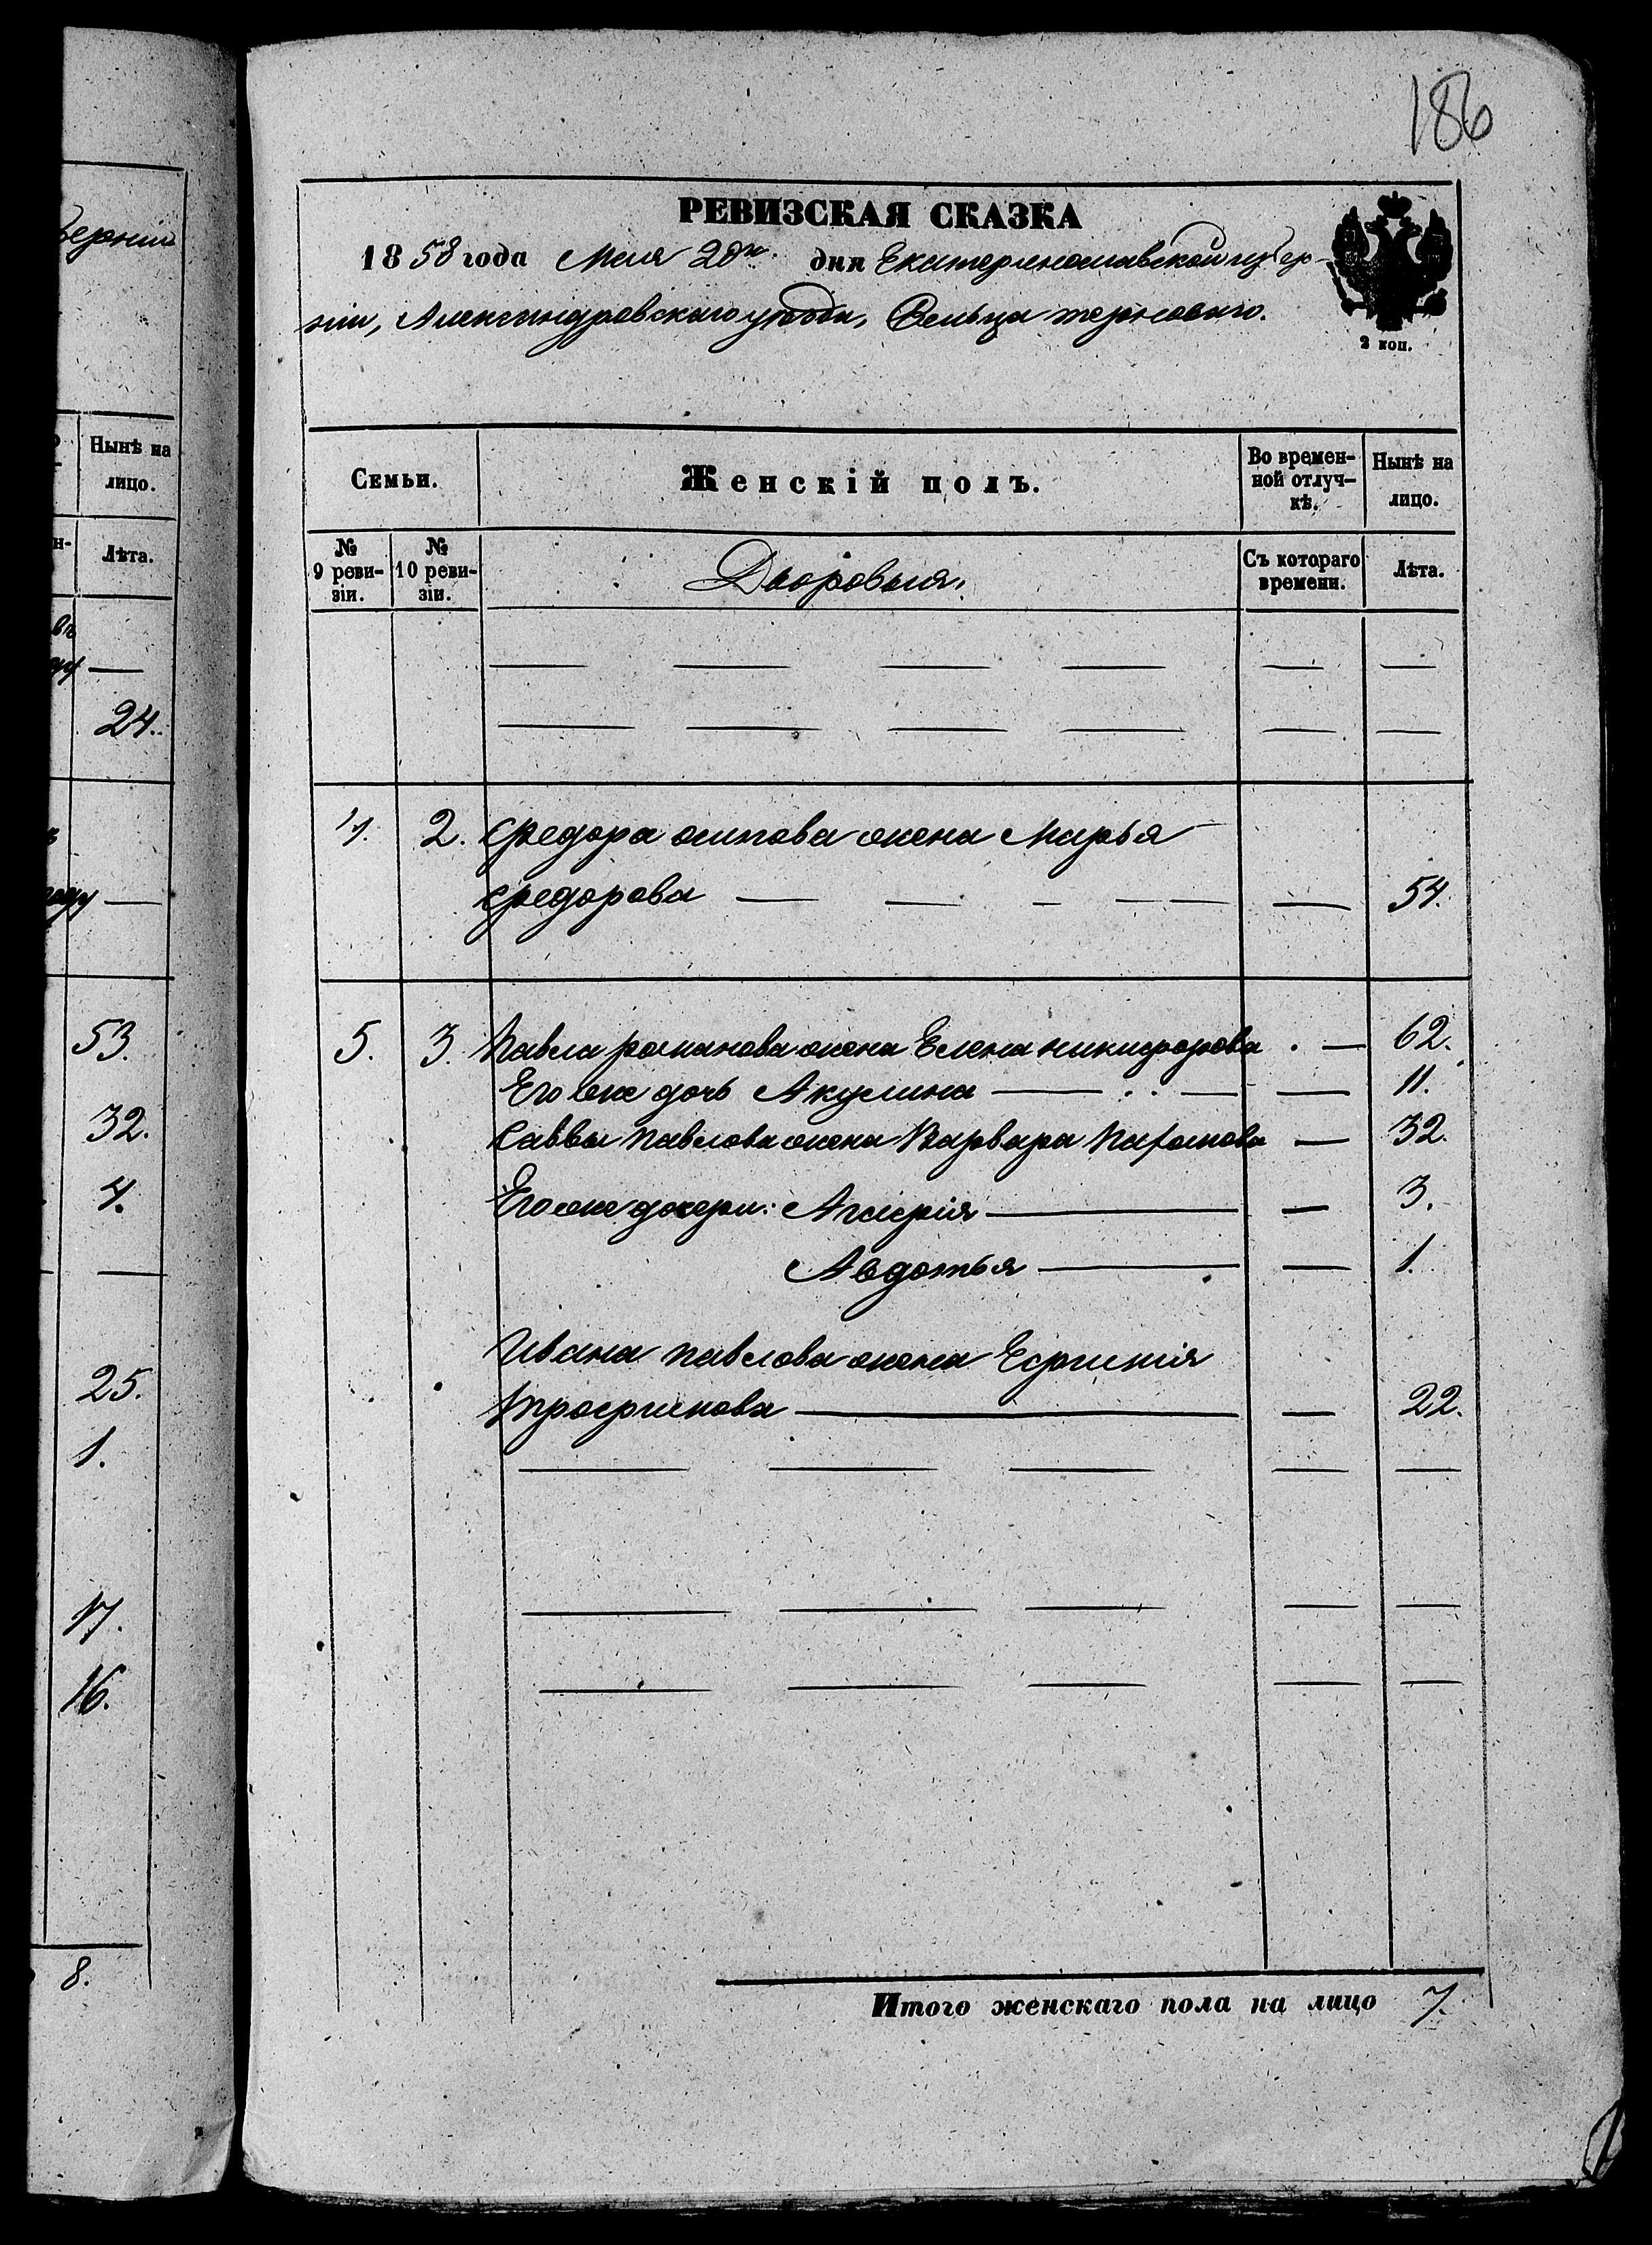 186
РЕВИЗСКАЯ СКАЗКА
1858 года Мая 20го дня Екатеринославской губер-
ніи, Александровскаго уѣзда, Сельца терноваго.
2 коп.
Семьи.
Женскій полъ.
Во времен-
ной отлуч-
кѣ.
Нынѣ на
лицо.
№
9 реви-
зіи.
№
10 реви-
зіи.
Дворовыя.
Съ котораго
времени.
Лѣта.
2. Федора осипова жена Марья
федорова — — — — — 54.
5. 3. Павла романова жена Елена никифорова — 62.
Его же дочь Акулина — — — 11.
Саввы павлова жена Варвара — 32.
Его же дочери: — — 3.
Авдотья — — 1.
Ивана павлова жена Ефимія
трофимова — — 22.
Итого женскаго пола на лицо 7.
берніи
Нынѣ на
лицо.
Лѣта.
24.
53.
32.
4.
25.
1.
17.
16.
8.